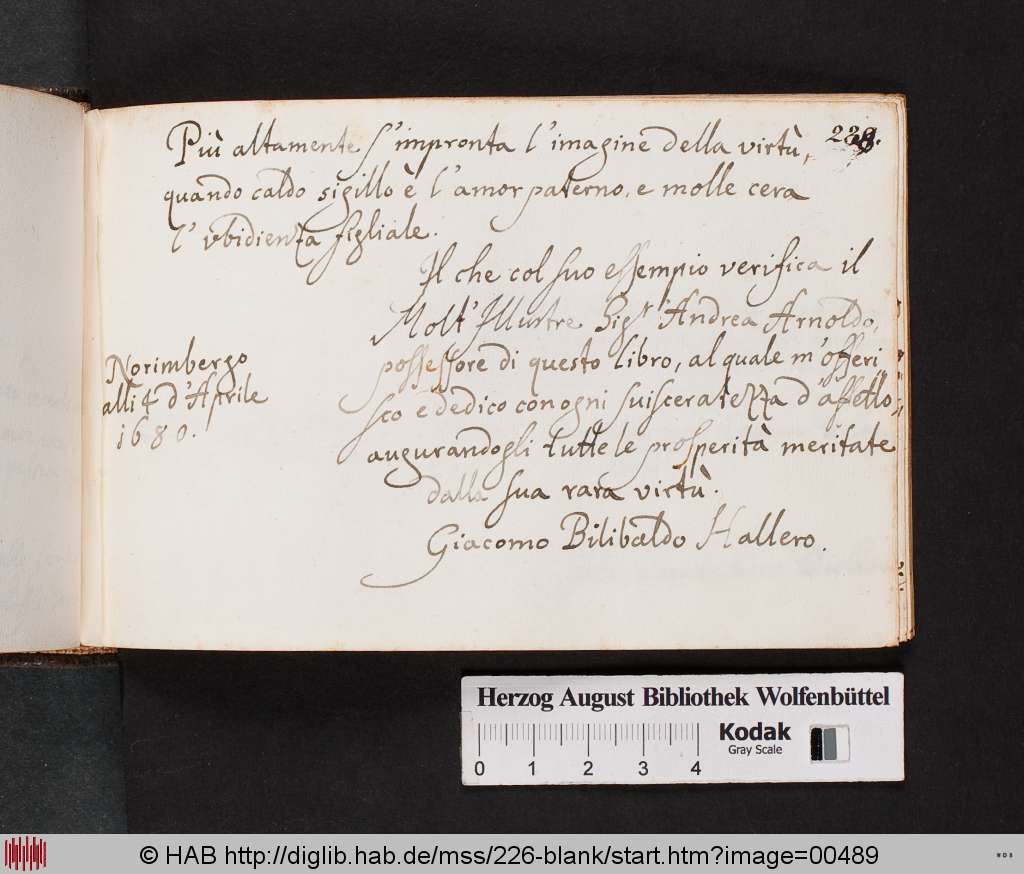 238.
Più altamente s'impronta l'imagine della virtù,
quando caldo sigillo è l'amor paterno, e molle cera
l'vbidienza figliale.
Il che col suo essempio verifica il
Molt'Illustre Sigr Andrea Arnoldo,
possessore di questo libro, al quale m'offeri
sco e dedico con ogni suisceratezza d'affetto
augurandogli tutte le prosperità meritate
dalla sua rara virtù.
Giacomo Bilibaldo Hallero.
Norimbergo
alli 4 d'Aprile
1680.
Herzog August Bibliothek Wolfenbüttel
0 1 2 3 4
Kodak
Gray Scale
© HAB http://diglib.hab.de/mss/226-blank/start.htm?image=00489
WDB